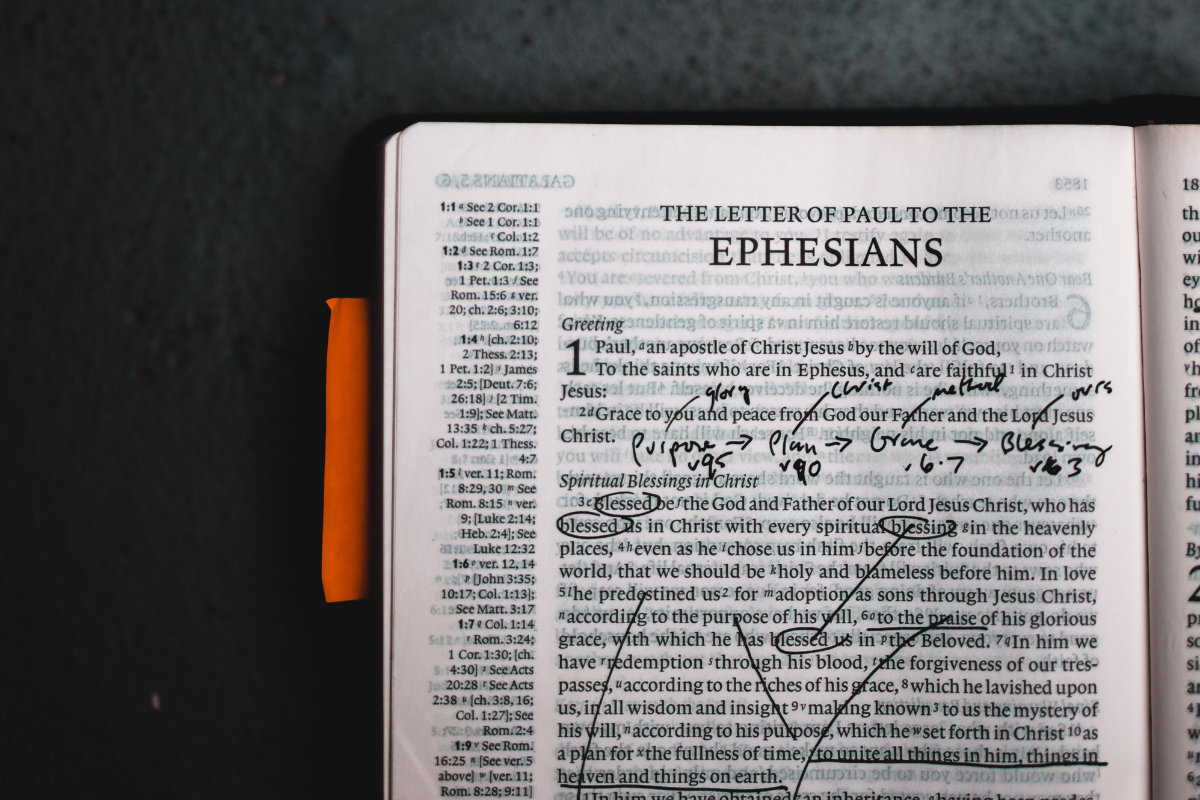 THE LETTER OF PAUL TO THE
EPHESIANS
Greeting
1 Paul, a an apostle of Christ Jesus b by the will of God,
To the saints who are in Ephesus, and c are faithful 1 in Christ
Jesus:
glory Christ method ours
2 d Grace to you and peace from God our Father and the Lord Jesus
Christ.
Purpose → Plan → Grace → Blessing
v. 6-7
Spiritual Blessings in Christ
3 e Blessed be f the God and Father of our Lord Jesus Christ, who has
blessed us in Christ with every spiritual blessing g in the heavenly
places, 4 h even as he i chose us in him j before the foundation of the
world, that we should be k holy and blameless before him. In love
5 l he predestined us 2 for m adoption as sons through Jesus Christ,
n according to the purpose of his will, 6 o to the praise of his glorious
grace, with which he has blessed us in p the Beloved. 7 q In him we
have r redemption s through his blood, t the forgiveness of our tres-
passes, u according to the riches of his grace, 8 which he lavished upon
us, in all wisdom and insight 9 v making known 3 to us the mystery of
his will, n according to his purpose, which he w set forth in Christ 10 as
a plan for x the fullness of time, y to unite all things in him, things in
heaven and things on earth.
11 In him we have obtained an inheritance, having been
1:1 a See 2 Cor. 1:1
b See 1 Cor. 1:1
c Col. 1:2
1:2 d See Rom. 1:7
1:3 e 2 Cor. 1:3;
1 Pet. 1:3 f See
Rom. 15:6 g ver.
20; ch. 2:6; 3:10;
6:12
1:4 h [ch. 2:10;
2 Thess. 2:13;
1 Pet. 1:2] i James
2:5; [Deut. 7:6;
26:18] j [2 Tim.
1:9]; See Matt.
13:35 k ch. 5:27;
Col. 1:22; 1 Thess.
4:7
1:5 l ver. 11; Rom.
8:29, 30 m See
Rom. 8:15 n ver.
9; [Luke 2:14;
Heb. 2:4]; See
Luke 12:32
1:6 o ver. 12, 14
p [John 3:35;
10:17; Col. 1:13];
See Matt. 3:17
1:7 q Col. 1:14
r Rom. 3:24;
1 Cor. 1:30; [ch.
4:30] s See Acts
20:28 t See Acts
2:38 u [ch. 3:8, 16;
Col. 1:27]; See
Rom. 2:4
1:9 v See Rom.
16:25 n [See ver. 5
above] w [ver. 11;
Rom. 8:28; 9:11]